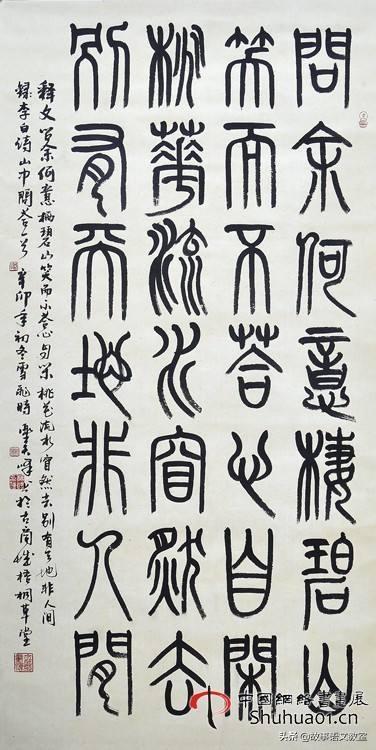 問余何意棲碧山
笑而不荅心自閑
桃華流水窅然去
別有天地非人間
释文 问余何意栖碧山笑而不答心自闲桃花流水窅然去别有天地非人间
錄李白诗山中問答一首 辛卯年初冬雪飛時 於古商城梧桐草堂
中國網絡書畫展
Shuhua01.cn
头条 @故事语文教室